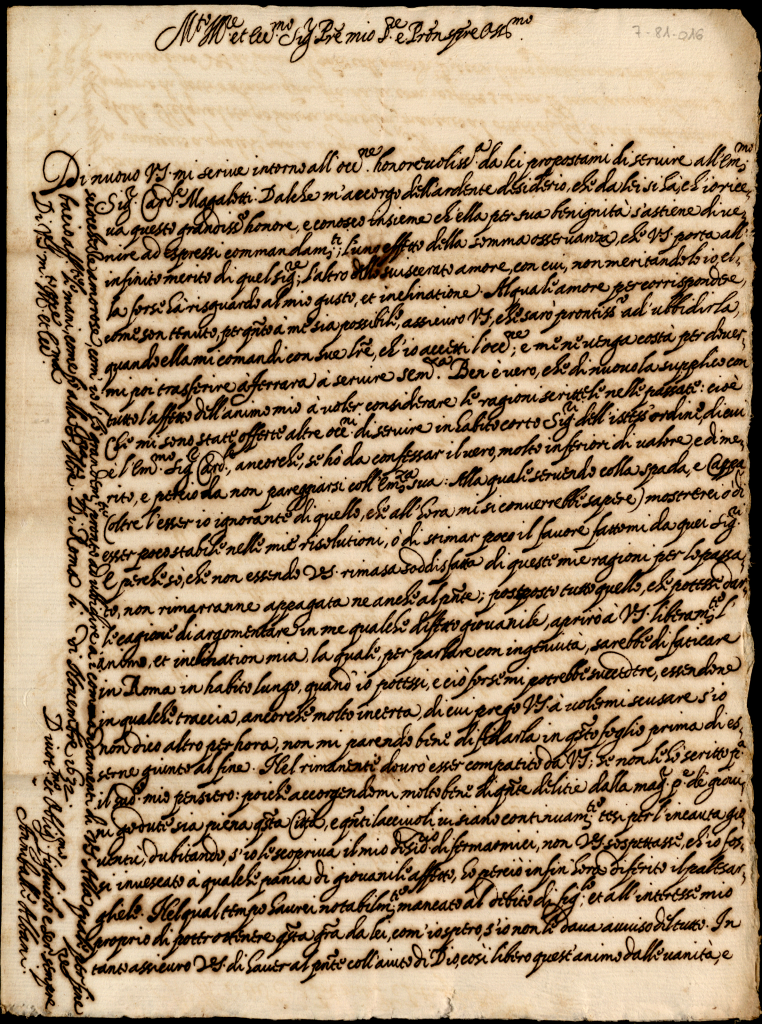 7-81-016
Mto Mce et Ecc.mo Sig.r Pre mio
Di nuovo VS. mi scrive intorno all'occ.ne honorevoliss.a da lei propostami di servire all'Em.mo
Sig.r Card.le Magalotti. Dal che m'accorgo dell'ardente desiderio, che da lei si hà, ch'io rice-
va questo grandiss.o honore, e conosco insieme ch'ella per sua benignità s'astiene di ve-
nire ad espressi commandam.ti; l'uno effetto della somma osservanza, che VS. porta all'
infinito merito di quel Sig.re, l'altro dello sviscerato amore, con cui, non meritandolo io, el-
la forse hà risguardo al mio gusto, et inclinatione. Al quale amore per corrispondere,
come son tenuto, per q.nto à me sia possibile, assicuro VS., che sarò prontiss.o ad ubbidirla,
quando ella mi comandi con sue l.re, ch'io accetti l'occ.ne, e me ne venga costà per dover-
mi poi trasferire a Ferrara à servire Sem. Ben è vero, che di nuovo la supplico con
tutto l'affetto dell'animo mio à voler considerare le ragioni scrittele nelle passate: cioè
Che mi sono state offerte altre occ.ni di servire in habito corto Sig.ri dell'istess'ordine, di cui
è l'Em.mo Sig.r Card.le, ancorche, se hò da confessar il vero, molto inferiori di valore e di me-
rito, e perciò da non pareggiarsi coll'Em.za sua: Alla quale servendo colla spada, e Cappa
(oltre l'esser io ignorante di quello, che all'hora mi si converrebbe sapere) mostrerei ò di
esser poco stabile nelle mie risolutioni, ò di stimar poco il favore fattomi da quei Sig.ri
E perche sò, che non essendo VS. rimasa soddisfatta di queste mie ragioni per lo passa-
to, non rimarranne appagata ne anche al p.nte; postposto tutto quello, che potesse dar-
le cagione di argomentare in me qualche difetto giovanile, aprirò à VS. liberam.te l'
animo, et inclination mia, la quale, per parlare con ingenuità, sarebbe di faticare
in Roma in habito lungo, quand'io potessi, e ciò forse mi potrebbe succedere, essendone
in qualche traccia, ancorche molto incerta, di cui prego VS. à volermi scusare s'io
non dico altro per hora, non mi parendo bene di fidarla in q.sto foglio prima di es-
serne giunto al fine. Nel rimanente dovrò esser compatito da VS., se non le hò scritto p.a
il mio pensiero: poiche accorgendomi molto bene di q.nte delitie dalla mag.r p.te de' giova-
ni godute sia piena q.sta Città, e q.nti laccivoli vi siano continuam.te tesi per l'incauta gio-
ventù, dubitando, s'io le scopriva il mio desid.o di fermarmici, non VS. sospettasse, ch'io fos-
si invescato à qualche pania di giovanile affetto, hò perciò infin'hora differito il palesar-
glielo. Nel qual tempo haurei notabilm.te mancato al debito di fig.lo, et all'interesse mio
proprio di poter ottenere q.sta gra da lei, com'io spero, s'io non le dava avviso di tutto. In
tanto assicuro VS. di haver al p.nte coll'aiuto di Dio, così libero quest'animo dalle vanità, e
amorose, com'io l'hò pronto ad ubbidire a i comandamenti di VS. Alla quale per fine
bacio affett.e le mani, come fò alla
Di Roma li VI di Novembre 1632.
Di VS. m.to Ill.re et Ecc.ma
Divot.mo et Oblig.mo figliuolo e Ser. sempre
Annibale Albani.